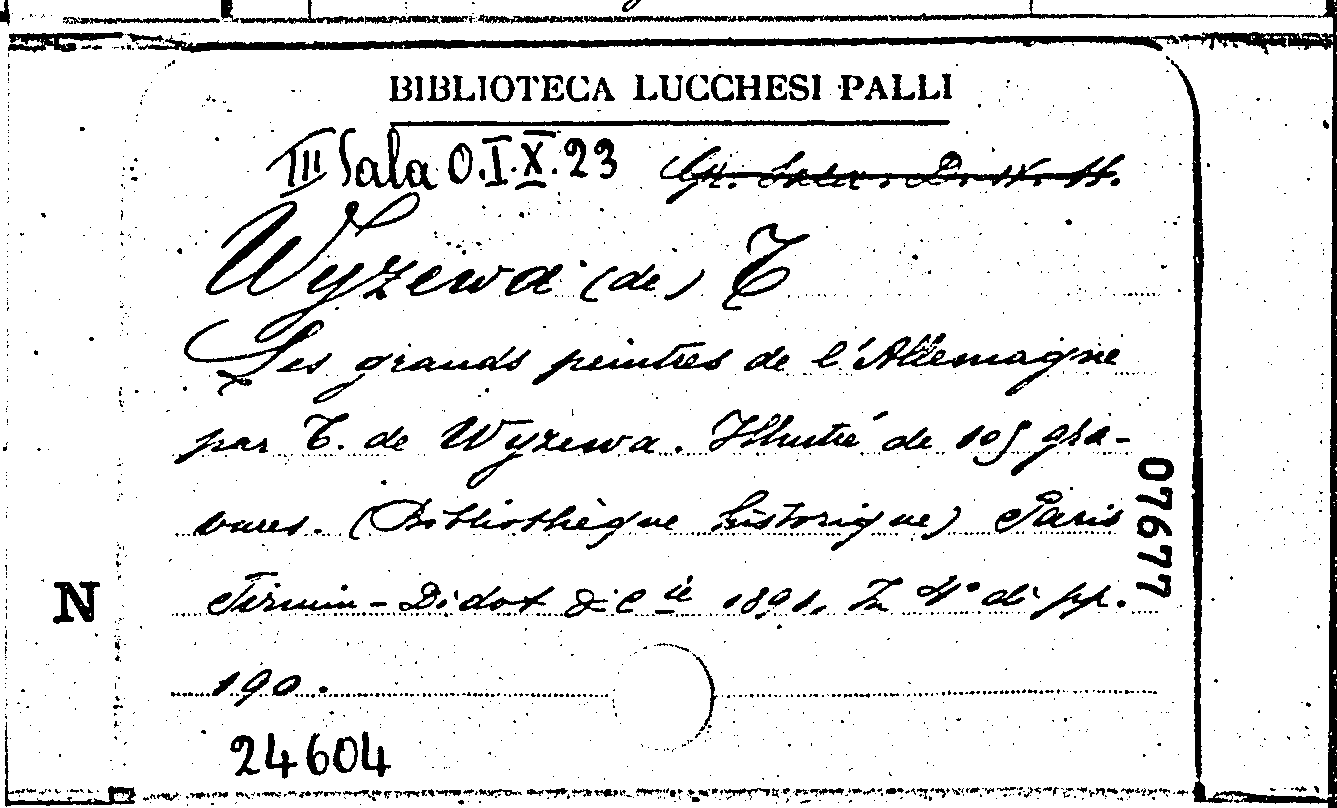 BIBLIOTECA LUCCHESI PALLI
III Sala O.I.X.23 Gr. Sala
Wyzewa (de) T
Les grands peintres de l'Allemagne
par T. de Wyzewa. Illustré de 105 gra-
vures. (Bibliothèque historique) Paris
Firmin-Didot & Cie 1891. In 4° di pp.
190.
24604
07677
N